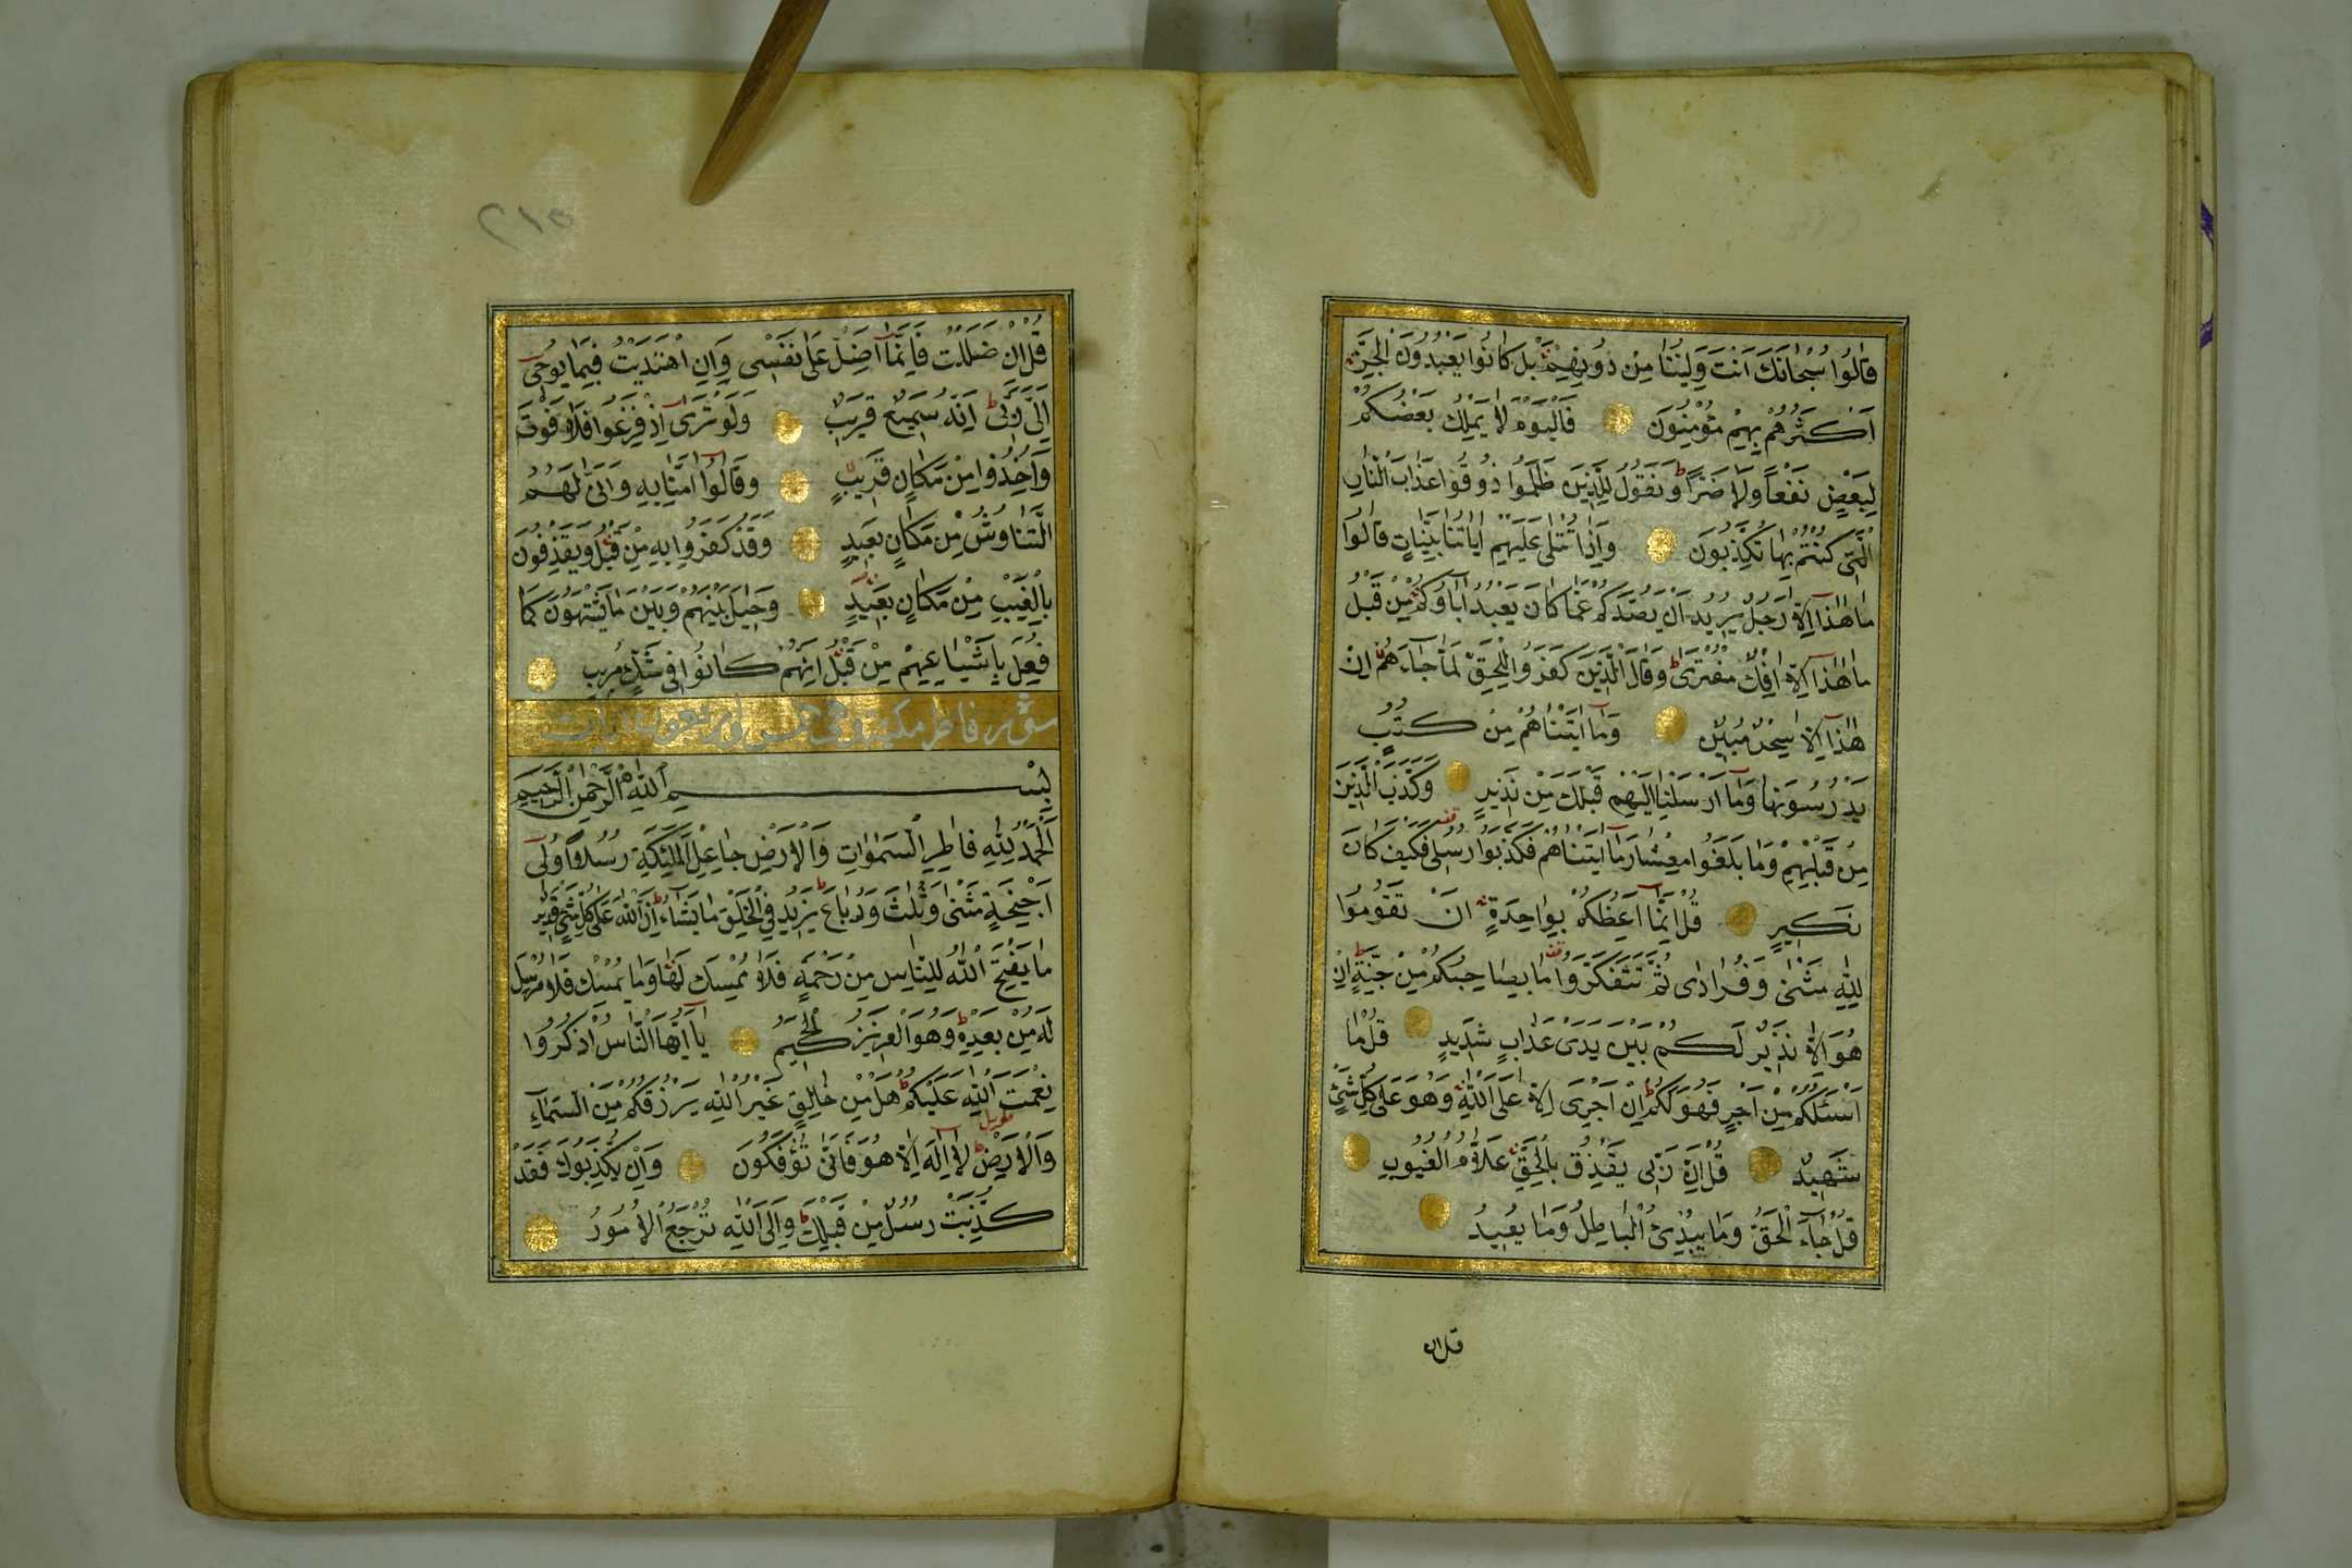 قَالُوا سُبْحَانَكَ اَنْتَ وَلِيُّنَا مِنْ دُونِهِمْ بَلْ كَانُوا يَعْبُدُونَ الْجِنَّ
اَكْثَرُهُمْ بِهِمْ مُؤْمِنُونَ فَالْيَوْمَ لَا يَمْلِكُ بَعْضُكُمْ
لِبَعْضٍ نَفْعاً وَلَا ضَرّاً وَنَقُولُ لِلَّذِينَ ظَلَمُوا ذُوقُوا عَذَابَ النَّارِ
الَّتِي كُنْتُمْ بِهَا تُكَذِّبُونَ وَاِذَا تُتْلٰى عَلَيْهِمْ اٰيَاتُنَا بَيِّنَاتٍ قَالُوا
مَا هٰذَا اِلَّا رَجُلٌ يُرِيدُ اَنْ يَصُدَّكُمْ عَمَّا كَانَ يَعْبُدُ اٰبَاؤُكُمْ مِنْ قَبْلُ
مَا هٰذَا اِلَّا اِفْكٌ مُفْتَرًى وَقَالَ الَّذِينَ كَفَرُوا لِلْحَقِّ لَمَّا جَاءَهُمْ اِنْ
هٰذَا اِلَّا سِحْرٌ مُبِينٌ وَمَا اٰتَيْنَاهُمْ مِنْ كُتُبٍ
يَدْرُسُونَهَا وَمَا اَرْسَلْنَا اِلَيْهِمْ قَبْلَكَ مِنْ نَذِيرٍ وَكَذَّبَ الَّذِينَ
مِنْ قَبْلِهِمْ وَمَا بَلَغُوا مِعْشَارَ مَا اٰتَيْنَاهُمْ فَكَذَّبُوا رُسُلِي فَكَيْفَ كَانَ
نَكِيرِ قُلْ اِنَّمَا اَعِظُكُمْ بِوَاحِدَةٍ اَنْ تَقُومُوا
لِلّٰهِ مَثْنٰى وَفُرَادٰى ثُمَّ تَتَفَكَّرُوا مَا بِصَاحِبِكُمْ مِنْ جِنَّةٍ اِنْ
هُوَ اِلَّا نَذِيرٌ لَكُمْ بَيْنَ يَدَيْ عَذَابٍ شَدِيدٍ قُلْ مَا
اَسْئَلُكُمْ مِنْ اَجْرٍ فَهُوَ لَكُمْ اِنْ اَجْرِيَ اِلَّا عَلَى اللّٰهِ وَهُوَ عَلٰى كُلِّ شَيْءٍ
شَهِيدٌ قُلْ اِنَّ رَبِّي يَقْذِفُ بِالْحَقِّ عَلَّامُ الْغُيُوبِ
قُلْ جَاءَ الْحَقُّ وَمَا يُبْدِئُ الْبَاطِلُ وَمَا يُعِيدُ
قل ان
٢١٥
قُلْ اِنْ ضَلَلْتُ فَاِنَّمَا اَضِلُّ عَلٰى نَفْسِي وَاِنِ اهْتَدَيْتُ فَبِمَا يُوحِي
اِلَيَّ رَبِّي اِنَّهُ سَمِيعٌ قَرِيبٌ وَلَوْ تَرٰى اِذْ فَزِعُوا فَلَا فَوْتَ
وَاُخِذُوا مِنْ مَكَانٍ قَرِيبٍ وَقَالُوا اٰمَنَّا بِهِ وَاَنّٰى لَهُمُ
التَّنَاوُشُ مِنْ مَكَانٍ بَعِيدٍ وَقَدْ كَفَرُوا بِهِ مِنْ قَبْلُ وَيَقْذِفُونَ
بِالْغَيْبِ مِنْ مَكَانٍ بَعِيدٍ وَحِيلَ بَيْنَهُمْ وَبَيْنَ مَا يَشْتَهُونَ كَمَا
فُعِلَ بِاَشْيَاعِهِمْ مِنْ قَبْلُ اِنَّهُمْ كَانُوا فِي شَكٍّ مُرِيبٍ
سورة فاطر مكية وهي خمس واربعون ايات
بِسْمِ اللّٰهِ الرَّحْمٰنِ الرَّحِيمِ
اَلْحَمْدُ لِلّٰهِ فَاطِرِ السَّمٰوَاتِ وَالْاَرْضِ جَاعِلِ الْمَلٰئِكَةِ رُسُلًا اُولِي
اَجْنِحَةٍ مَثْنٰى وَثُلٰثَ وَرُبَاعَ يَزِيدُ فِي الْخَلْقِ مَا يَشَاءُ اِنَّ اللّٰهَ عَلٰى كُلِّ شَيْءٍ قَدِيرٌ
مَا يَفْتَحِ اللّٰهُ لِلنَّاسِ مِنْ رَحْمَةٍ فَلَا مُمْسِكَ لَهَا وَمَا يُمْسِكْ فَلَا مُرْسِلَ
لَهُ مِنْ بَعْدِهِ وَهُوَ الْعَزِيزُ الْحَكِيمُ يَا اَيُّهَا النَّاسُ اذْكُرُوا
نِعْمَتَ اللّٰهِ عَلَيْكُمْ هَلْ مِنْ خَالِقٍ غَيْرُ اللّٰهِ يَرْزُقُكُمْ مِنَ السَّمَاءِ
وَالْاَرْضِ لَا اِلٰهَ اِلَّا هُوَ فَاَنّٰى تُؤْفَكُونَ وَاِنْ يُكَذِّبُوكَ فَقَدْ
كُذِّبَتْ رُسُلٌ مِنْ قَبْلِكَ وَاِلَى اللّٰهِ تُرْجَعُ الْاُمُورُ